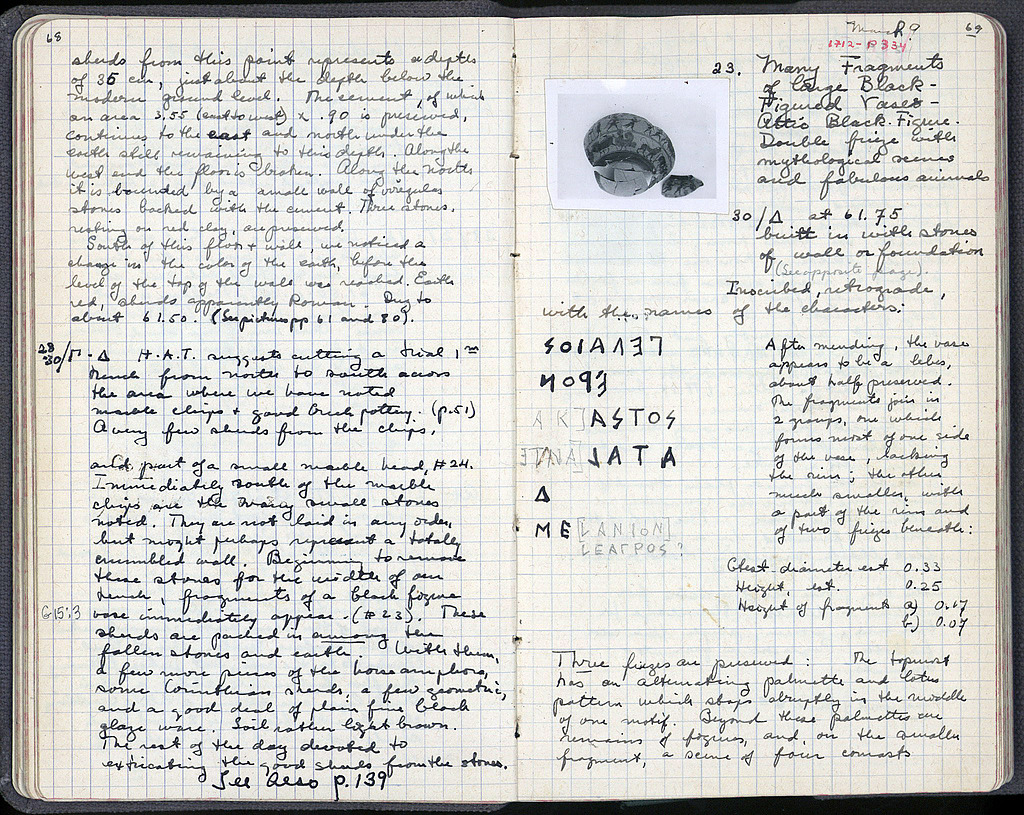 68
sherds from this point represents a depth
of 35 cm, just about the depth below the
modern ground level. The cement, of which
an area 3.55 (east to west) x .90 is preserved,
continues to the east and north under the
earth still remaining to this depth. Along the
west end the floor is broken. Along the North
it is bounded by a small wall of irregular
stones backed with the cement. Three stones,
resting on red clay, are preserved.
South of this floor + wall, we noticed a
change in the color of the earth, before the
level of the top of the wall was reached. Earth
red, sherds apparently Roman. Dug to
about 61.50. (See pictures pp 61 and 80).
28
30/Π - Δ H.A.T. suggests cutting a trial 1 m
trench from north to south across
the area where we have noted
marble chips + good Greek pottery. (p.51)
A very few sherds from the chips,
and part of a small marble head, #24.
Immediately south of the marble
chips are the many small stones
noted. They are not laid in any order,
but might perhaps represent a totally
crumbled wall. Beginning to remove
these stones for the width of our
trench, fragments of a black figure
G15:3 vase immediately appear. (#23). These
sherds are packed in among the
fallen stones and earth. With them,
a few more pieces of the horse amphora,
some Corinthian sherds, a few geometric,
and a good deal of plain fine black
glaze ware. Soil rather light brown.
The rest of the day devoted to
extricating the good sherds from the stones.
See also p.139
March 9
69
1712 - P 334
23. Many Fragments
of large Black-
Figured Vases -
Attic Black Figure.
Double frieze with
mythological scenes
and fabulous animals
30/Δ at 61.75
built in with stones
of wall or foundation
(See opposite page).
Inscribed, retrograde,
with the names of the characters:
SOIAΛEΓ
ИOPE
AK]ASTOS
ATAJ
Δ
ME[LANION]
LEAΓPOS?
After mending, the vase
appears to be a lebes,
about half preserved.
The fragments join in
2 groups, one which
forms most of one side
of the vase, lacking
the rim; the other
much smaller, with
a part of the rim and
of two friezes beneath:
Gtest. diameter est 0.33
Height, est. 0.25
Height of fragments a) 0.17
b) 0.07
Three friezes are preserved: The topmost
has an alternating palmette and lotus
pattern which stops abruptly in the middle
of one motif. Beyond these palmettes are
remains of figures, and, on the smaller
fragment, a scene of four comasts